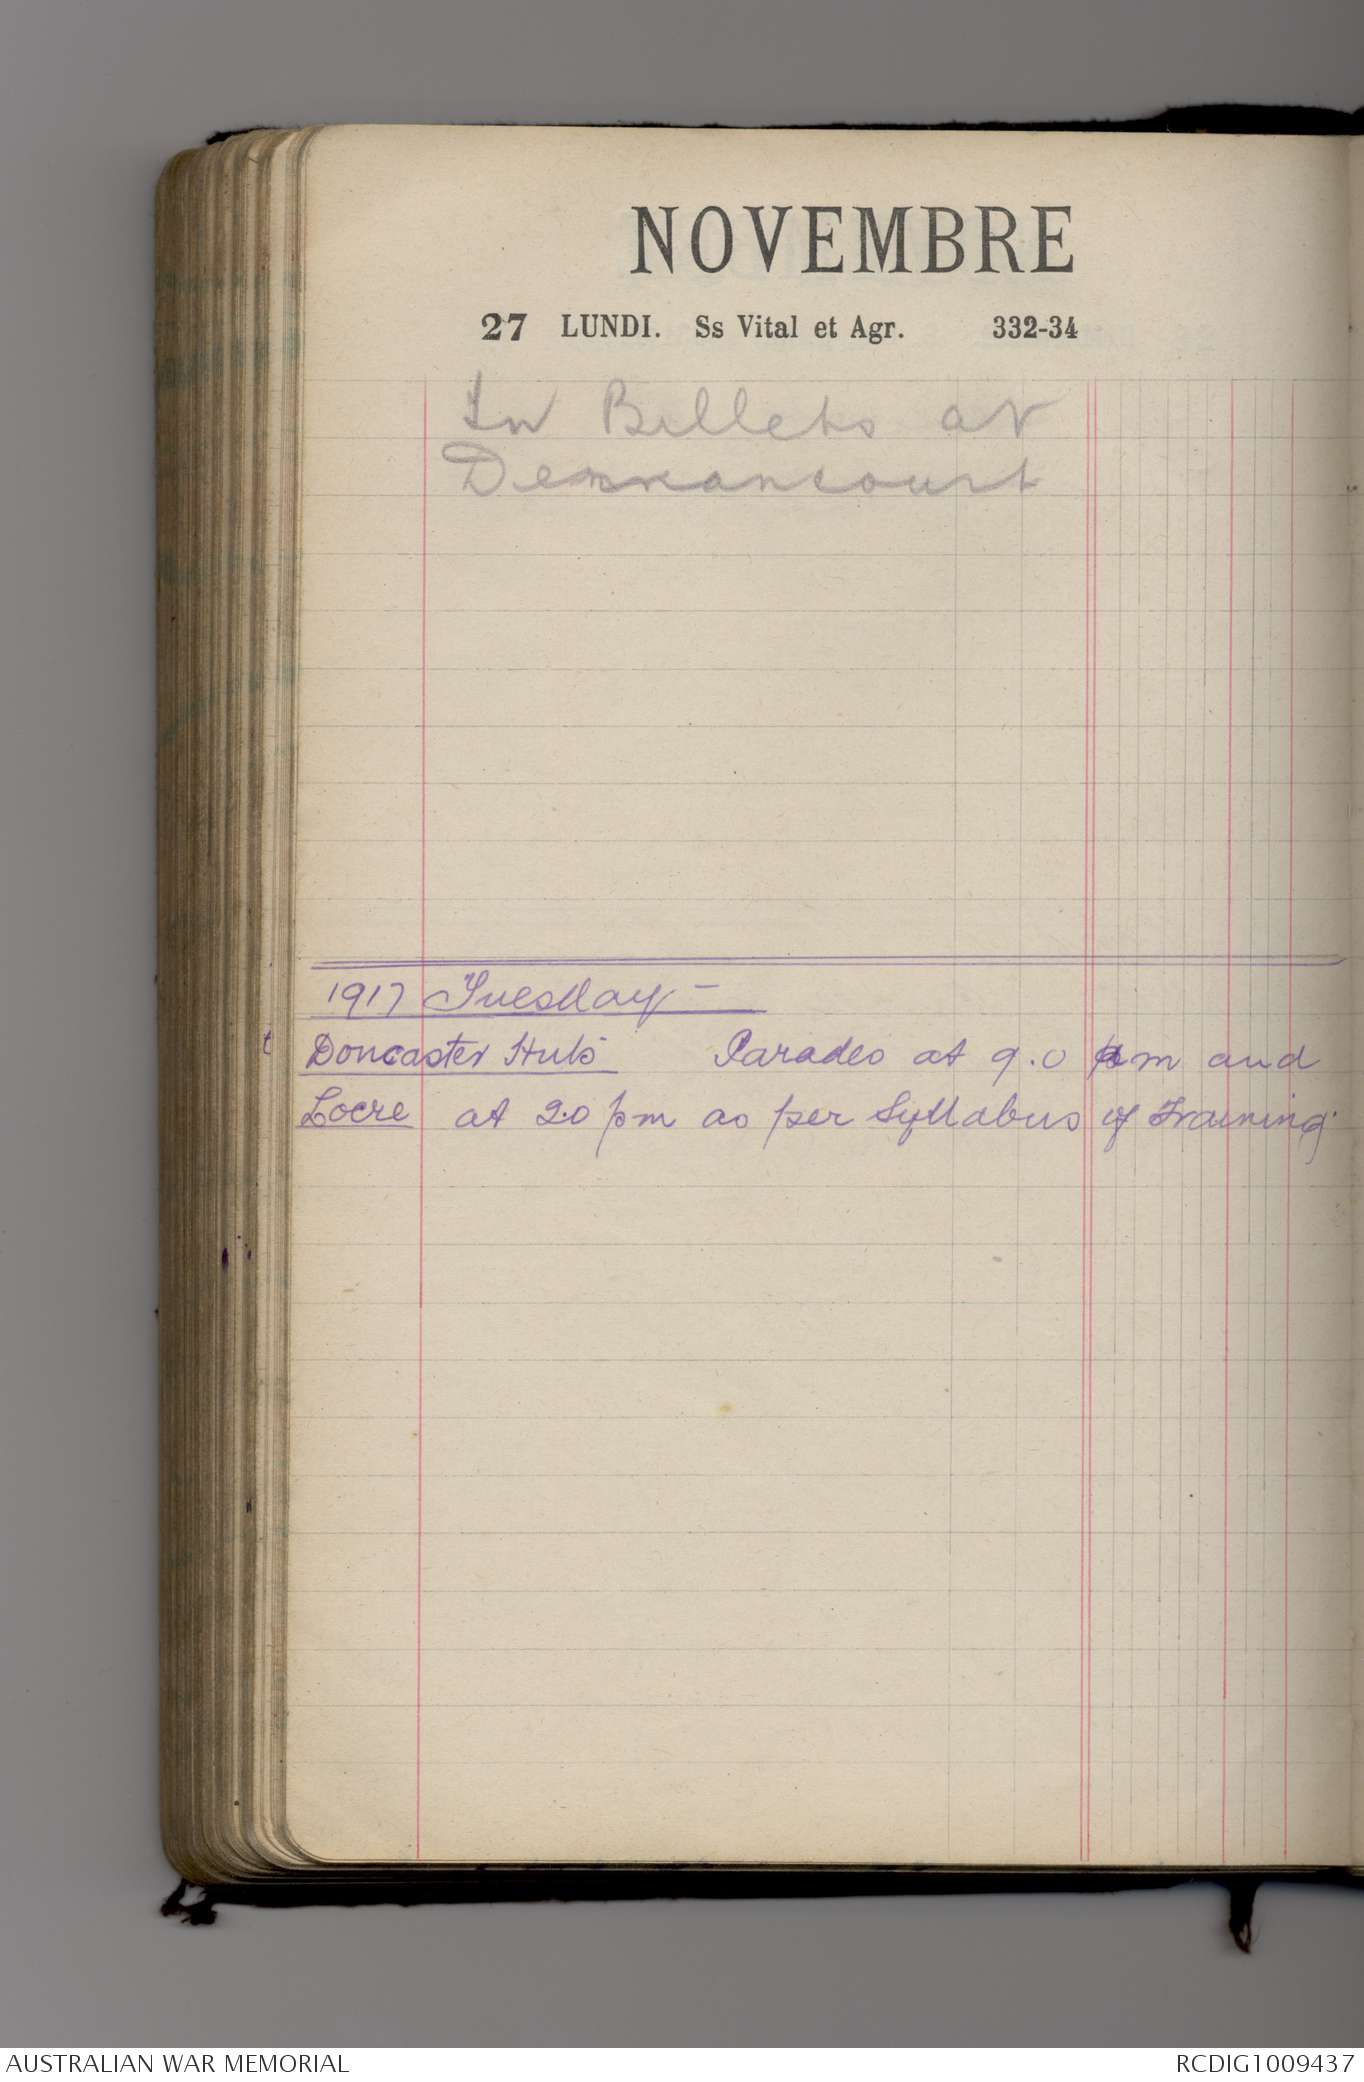 NOVEMBRE
27 LUNDI. Ss Vital et Agr. 332-34
In Billets at
Dernancourt
1917 Tuesday -
Doncaster Huts Parades at 9.0 am and
Locre at 2.0 pm as per Syllabus of Training.
AUSTRALIAN WAR MEMORIAL RCDIG1009437